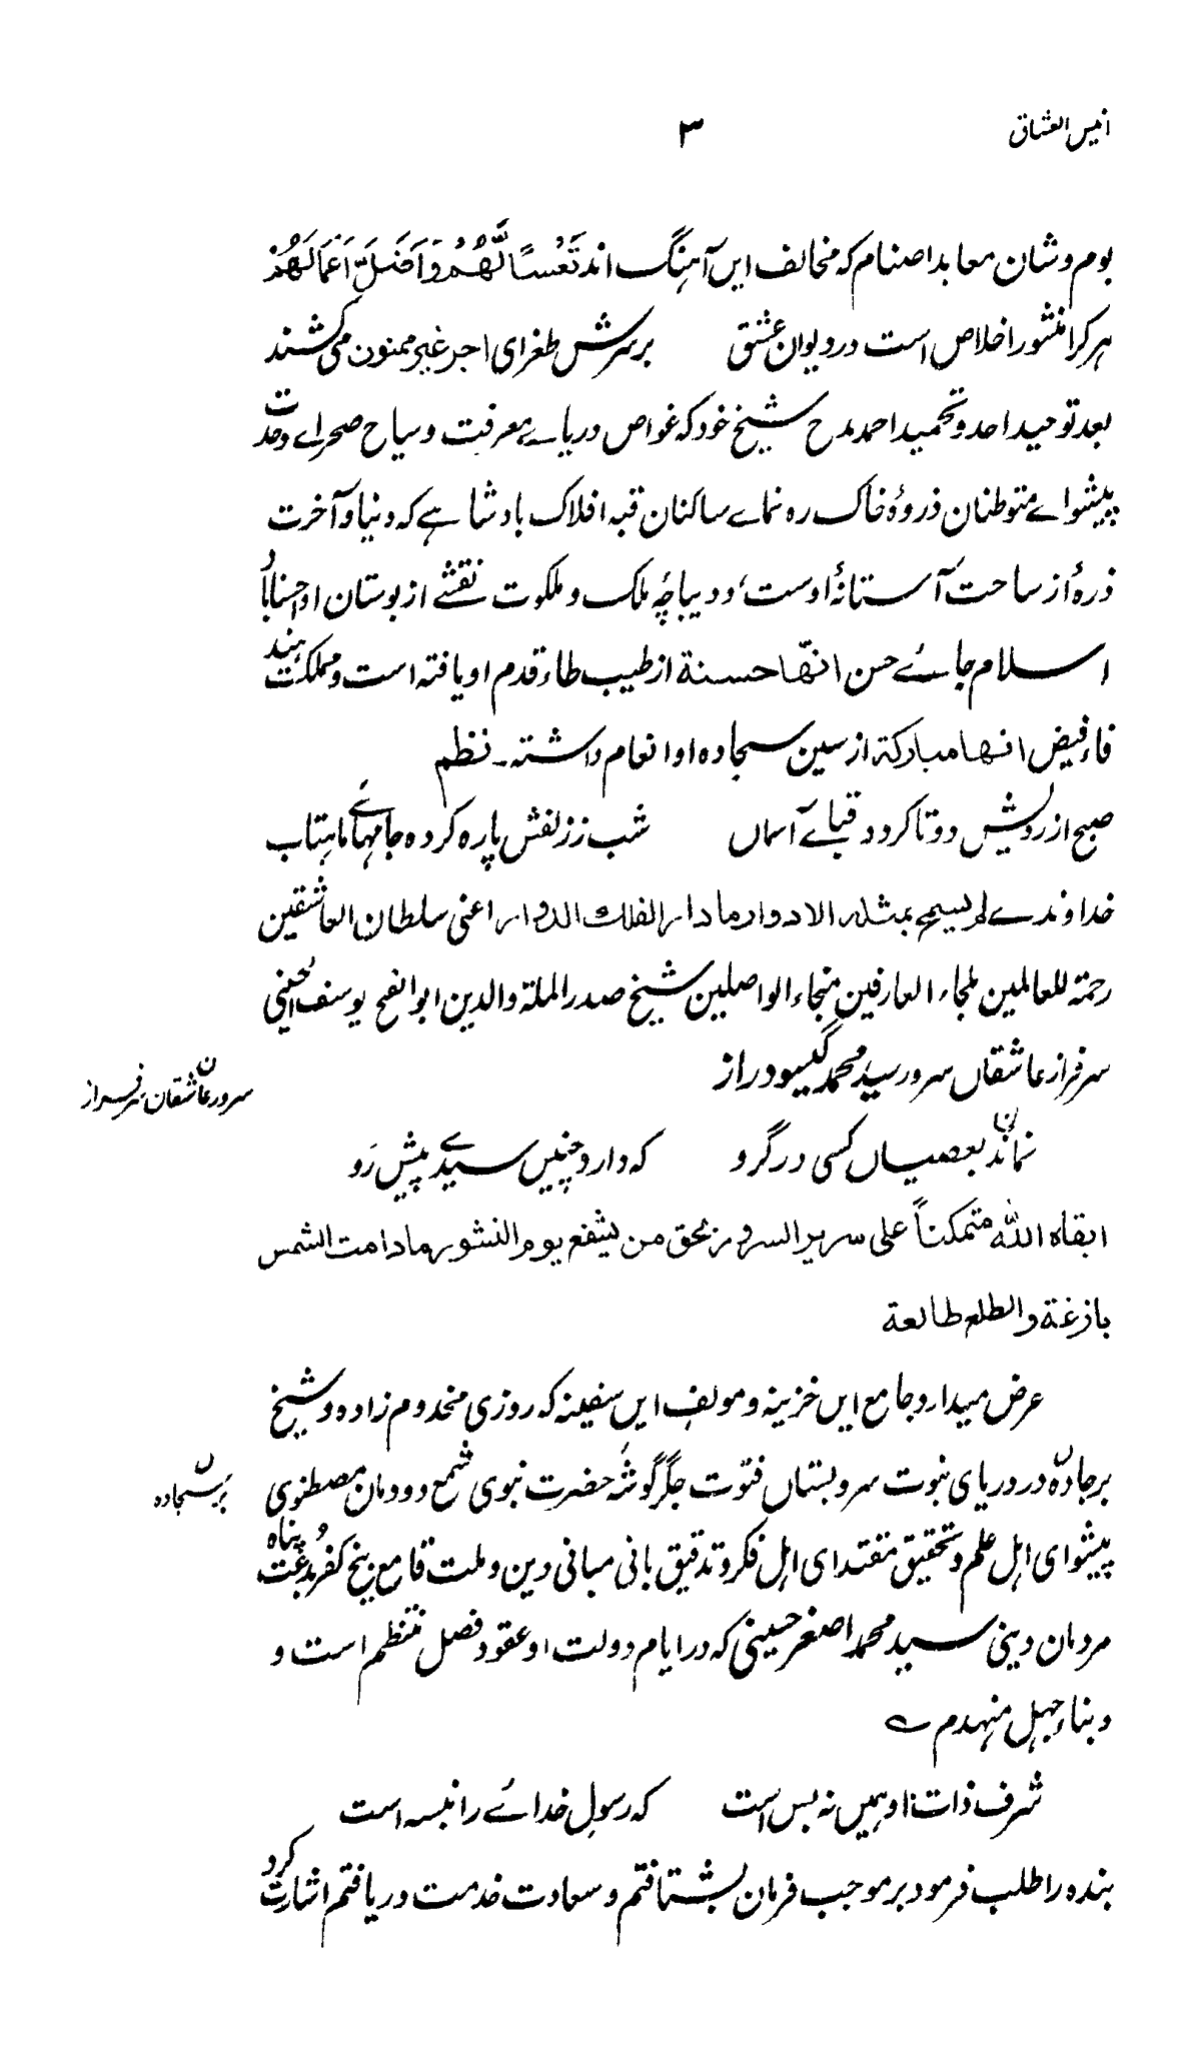 انیس العشاق
۳
بوم وشان معابد اصنام کہ مخالف ایں آہنگ اند تَعْسًا لَّهُمْ وَاَضَلَّ اَعْمَالَهُمْ
ہر کرا منشور اخلاص است در دیوان عشق برسرش طغرای اجر غیر ممنون می کشند
بعد توحید احد و تحمید احمد مدح شیخ خود کہ غواص دریاے معرفت و سیاح صحراے وحدت
پیشواے متوطنان ذروۂ خاک رہ نماے ساکنان قبہ افلاک بادشاہے کہ دنیا و آخرت
ذرۂ از ساحت آستانۂ اوست، و دیباچۂ ملک و ملکوت نقشے از بوستان او
اسلام جائے حسن انها حسنة از طیب طاء قدم او یافته است و مملکت ہند
فاء فیض انها مبارکة از سین سجادہ او انعام داشته۔ نظم
صبح از رویش دوتا کردد قباے آسماں شب ز زلفش پارہ کردہ جامہاے ماہتاب
خداوندے لم یسمح بمثله الادوار ما دار الفلك الدوار اعنی سلطان العاشقین
رحمة للعالمین ملجاء العارفین منجاء الواصلین شیخ صدر الملة والدین ابو الفتح یوسف الحسینی
سرفراز عاشقاں سرور سید محمد گیسودراز
سرور عاشقان سرفراز ن
نماند بعصیاں کسی در گرو کہ دارد چنیں سیدے پیش رَو
ابقاه الله متمکناً علی سریر السرور بحق من یشفع یوم النشور مادامت الشمس
بازغة والطلع طالعة
عرض میدارد جامع ایں خزینہ و مولف ایں سفینہ کہ روزی مخدوم زادہ و شیخ
برجادہ در دریای نبوت سرو بستاں فتوت جگر گوشۂ حضرت نبوی شمع دودمان مصطفوی
برسجادہ ن
پیشوای اہل علم و تحقیق مقتدای اہل فکر و تدقیق بانی مبانی دین و ملت قامع بیخ کفر و بدعت پناہ
مردمان دینی سید محمد اصغر حسینی کہ در ایام دولت او عقود فضل منتظم است و
و بناء جہل منہدم ے
شرف ذات او ہمیں نہ بس است کہ رسول خدائے را نبسہ است
بندہ را طلب فرمود بر موجب فرمان بشتافتم و سعادت خدمت دریافتم اشارت کرد